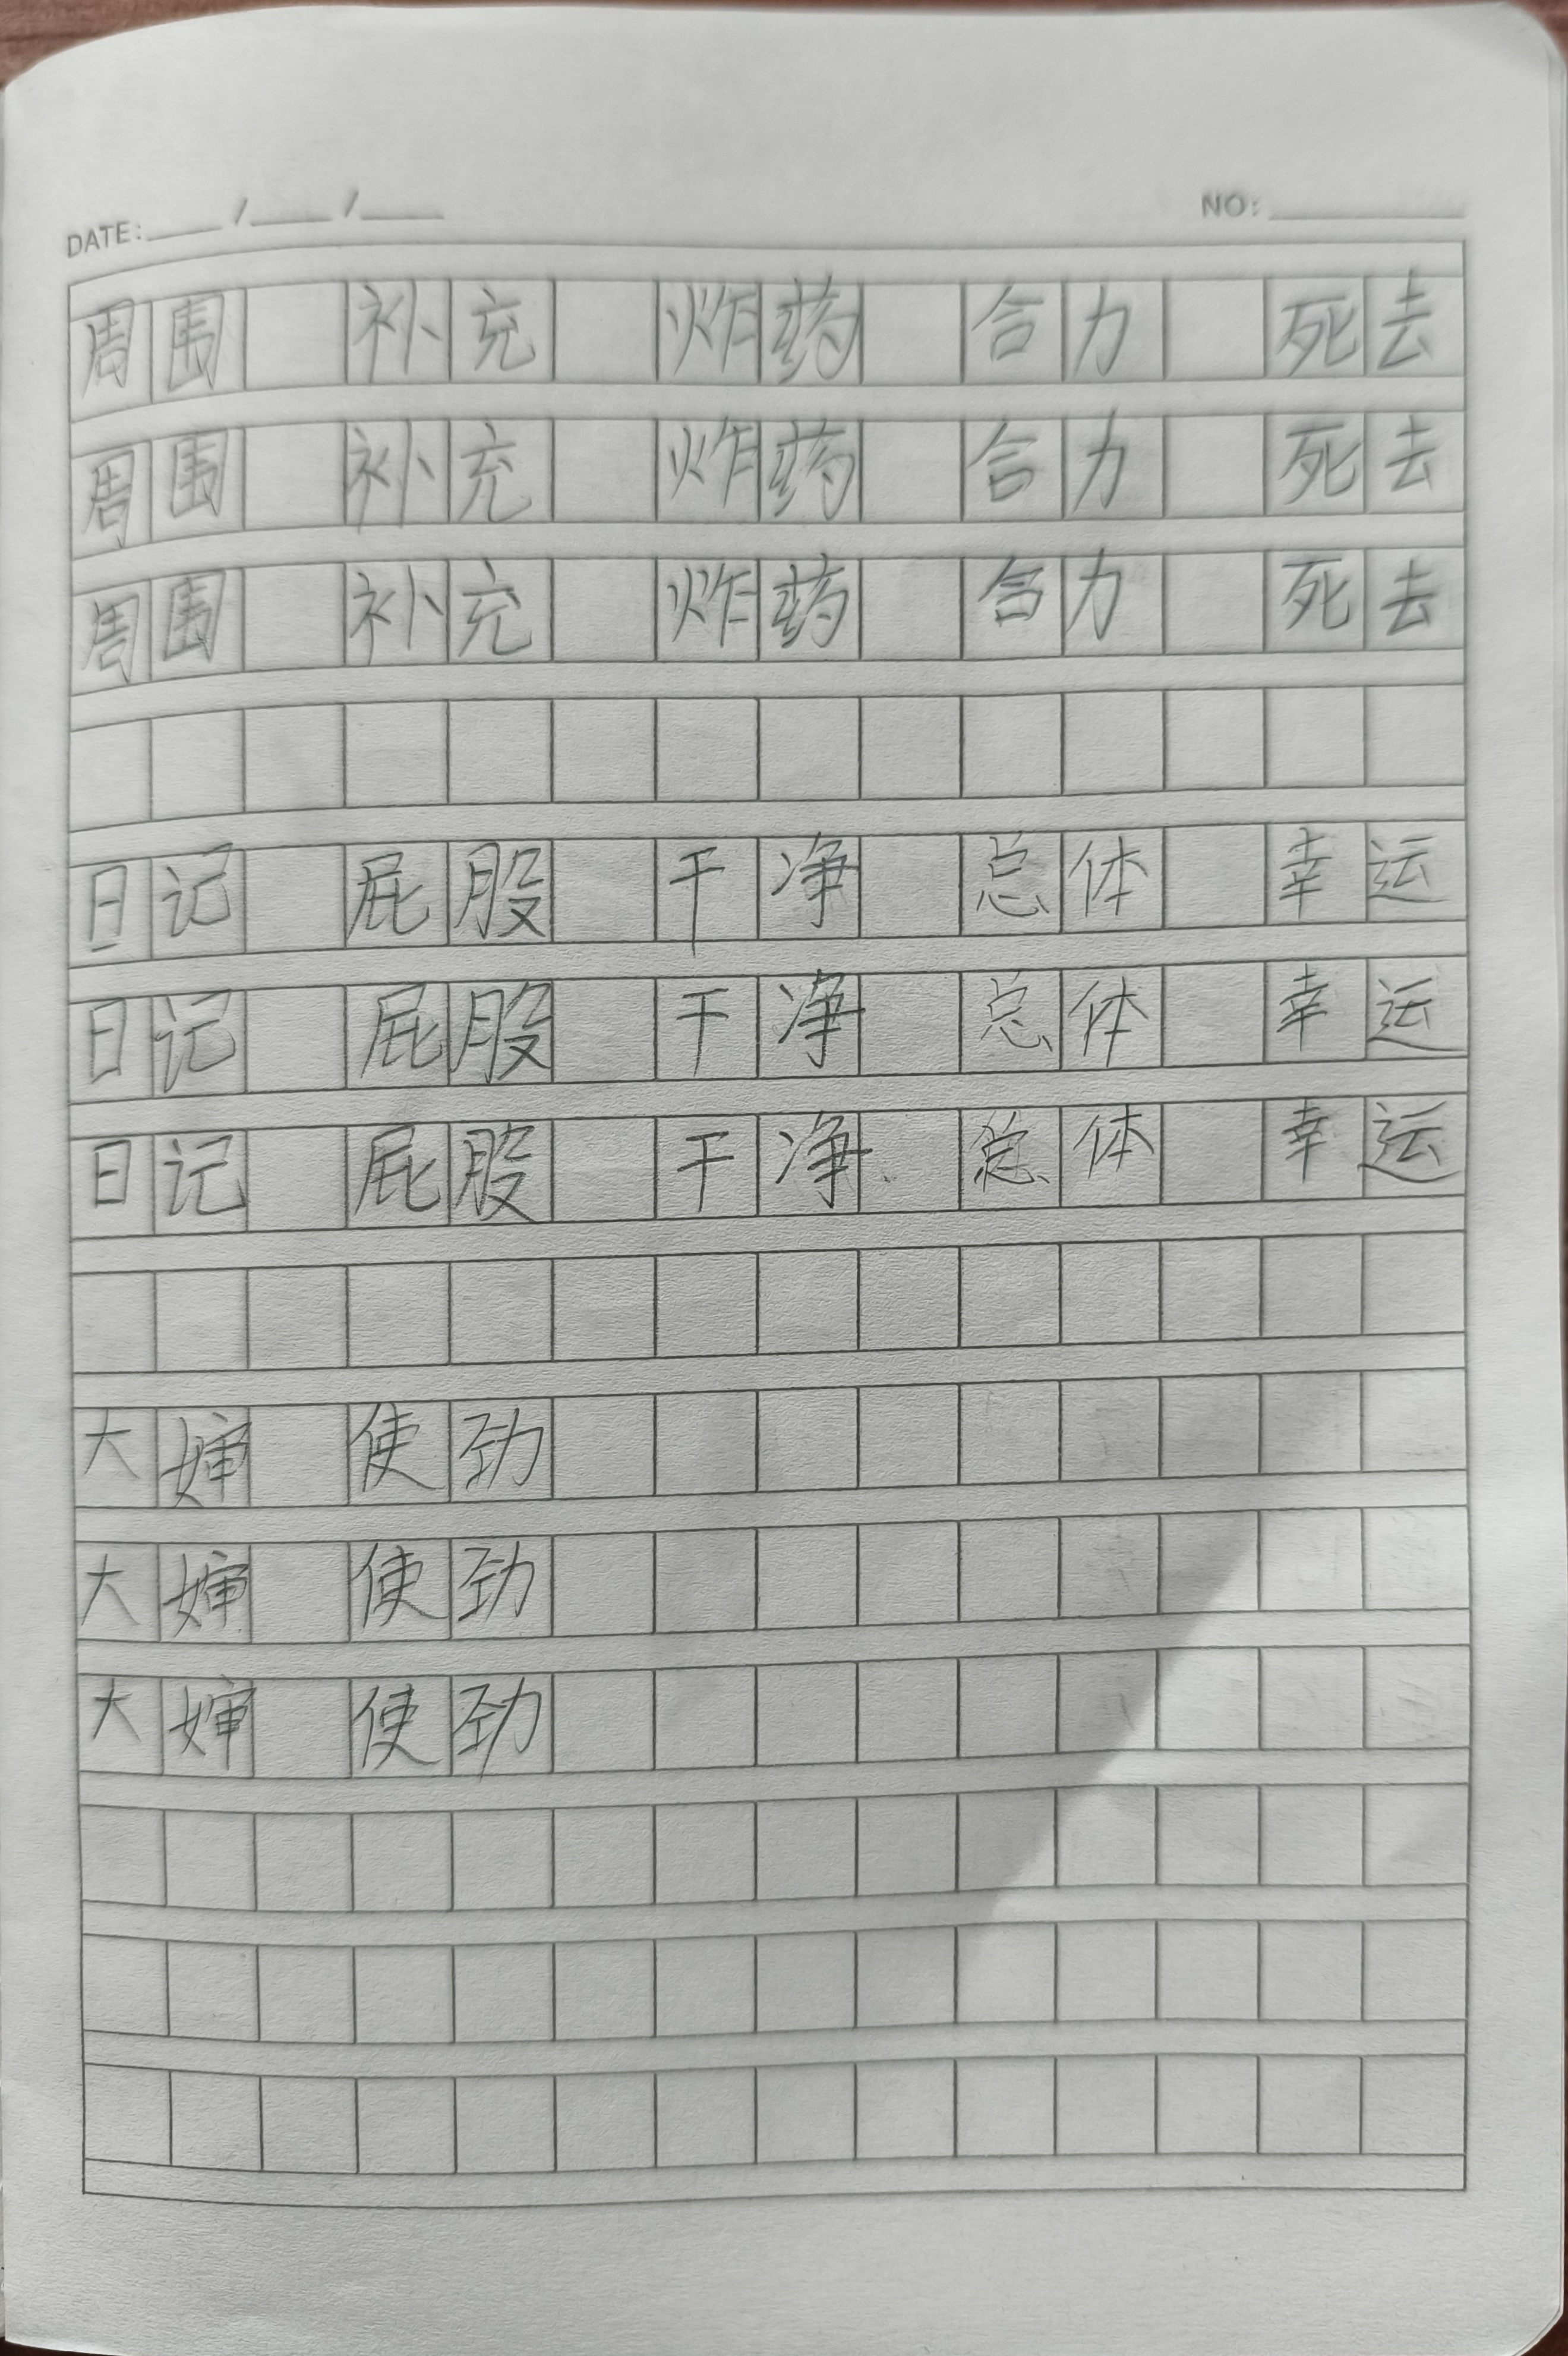 DATE: ___ / ___ / ___ NO: ______
周围 补充 炸药 合力 死去
周围 补充 炸药 合力 死去
周围 补充 炸药 合力 死去
日记 屁股 干净 总体 幸运
日记 屁股 干净 总体 幸运
日记 屁股 干净 总体 幸运
大婶 使劲
大婶 使劲
大婶 使劲